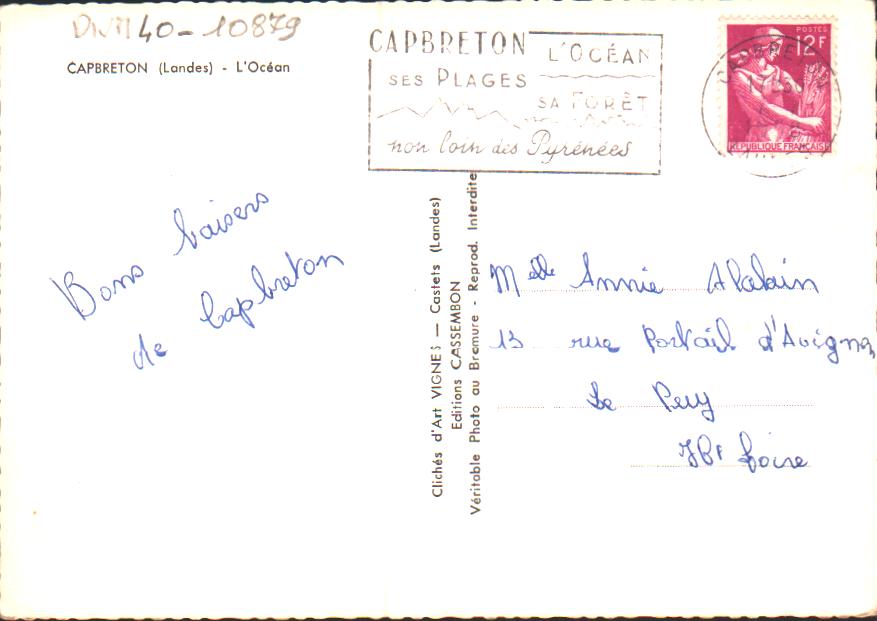 40-10879
CAPBRETON (Landes) - L'Océan
CAPBRETON L'OCÉAN
SES PLAGES
SA FORÊT
non loin des Pyrénées
POSTES
12F
REPUBLIQUE FRANÇAISE
CAPBRETON
Bons baisers
de Capbreton
Clichés d'Art VIGNES — Castets (Landes)
Editions CASSEMBON
Véritable Photo au Bromure - Reprod. Interdite
Melle Annie Alabain
13 rue Portail d'Avignon
Le Puy
Hte Loire